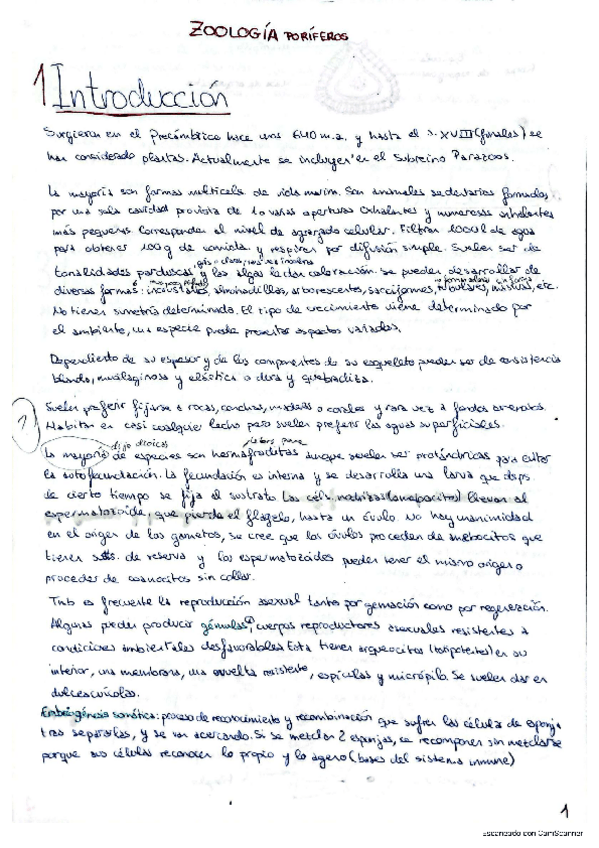 ZOOLOGÍA PORÍFEROS
1 Introducción
Surgieron en el Precámbrico hace unos 640 m.a. y hasta el s. XVIII (finales) se
han considerado plantas. Actualmente se incluyen en el Subreino Parazoos.
La mayoría son formas multicels. de vida marin. Son animales sedentarios formados
por una sola cavidad provista de 1 o varias aperturas exhalantes y numerosas inhalantes
más pequeñas. Corresponden al nivel de agregado celular. Filtran 1000 l de agua
para obtener 100 g de comida y respiran por difusión simple. Suelen ser de
tonalidades parduscas y las algas le dan coloración. Se pueden desarrollar de
diversas formas: incrustantes, almohadillas, arborescentes, sacciformes, tubulares, masivas, etc.
No tienen simetría determinada. El tipo de crecimiento viene determinado por
el ambiente, una especie puede presentar aspectos variados.
Dependiendo de su espesor y de los componentes de su esqueleto pueden ser de consistencia
blanda, mucilaginosa y elástica o dura y quebradiza.
Suelen preferir fijarse a rocas, conchas, maderas o corales y rara vez a fondos arenosos.
Habitan en casi cualquier lecho pero suelen preferir las aguas superficiales.
?
dijo dioicas
La mayoría de especies son hermafroditas aunque suelen ser protándricas para evitar
la autofecundación. La fecundación es interna y se desarrolla una larva que dsps
de cierto tiempo se fija al sustrato. Las céls. nodrizas (amebocitos) llevan al
espermatozoide, que pierde el flagelo, hasta un óvulo. No hay unanimidad
en el origen de los gametos, se cree que los óvulos proceden de amebocitos que
tienen sust. de reserva y los espermatozoides pueden tener el mismo origen o
proceder de coanocitos sin collar.
Tmb es frecuente la reproducción asexual tanto por gemación como por regeneración.
Algunas pueden producir gémulas, cuerpos reproductores asexuales resistentes a
condiciones ambientales desfavorables. Esta tienen arqueocitos (totipotentes) en su
interior, una membrana, una envuelta resistente, espículas y micrópilo. Se suelen dar en
dulceacuícolas.
Embriogénesis somática: proceso de reconocimiento y recombinación que sufren las células de esponja
tras separarlas, y se van acercando. Si se mezclan 2 esponjas, se recomponen sin mezclarse
porque sus células reconocen lo propio y lo ajeno (bases del sistema inmune)
1
Escaneado con CamScanner